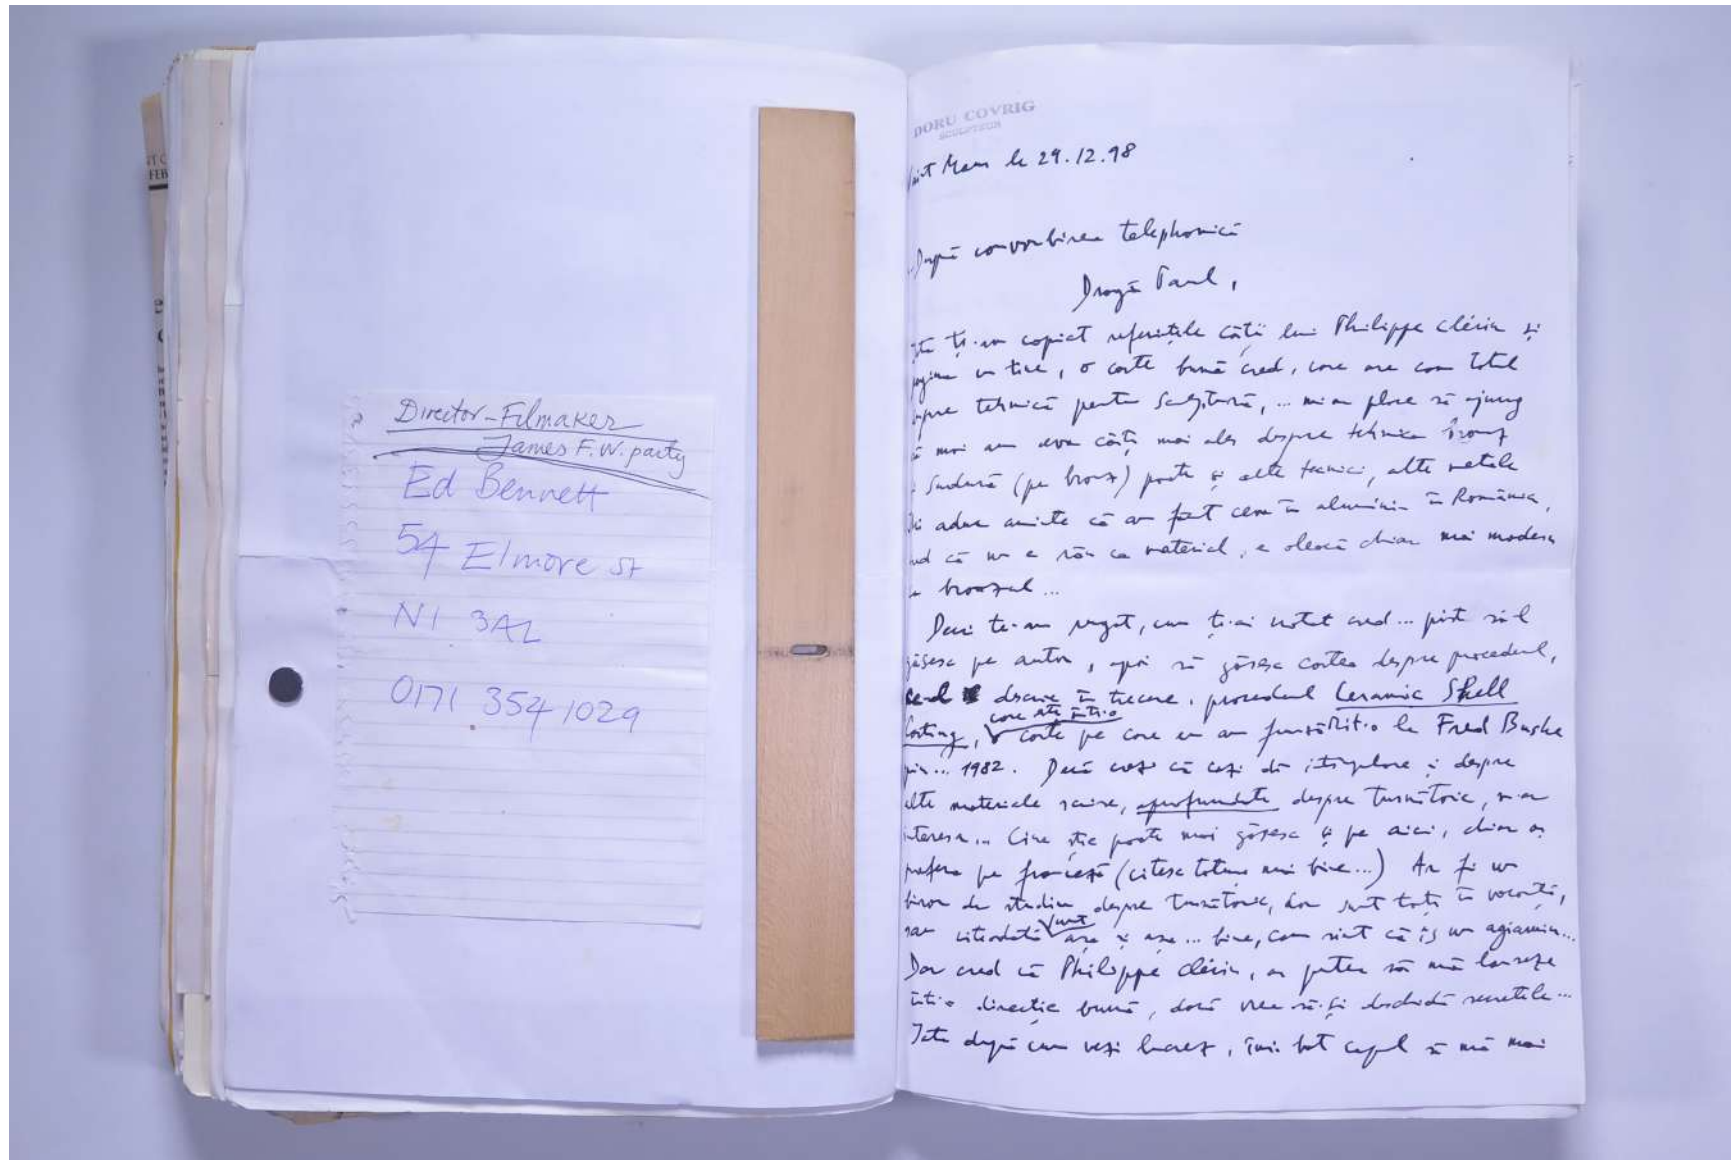 Director-Filmaker
James F.W. party
Ed Bennett
54 Elmore St
N1 3AL
0171 354 1029
DORU COVRIG
SCULPTEUR
le 29.12.98
După convorbirea telephonică
Dragă Paul,
copiat referințele cărții lui Philippe Clérin și
o carte bună cred, care are cam totul
tehnică pentru sculptură, ... mi-ar place să ajung
mai ales despre tehnica bronz
sudură (pe bronz) poate și alte tecnici, alte metale
aduc aminte că am făcut ceva în aluminiu în România,
că nu e rău ca material, e oleacă chiar mai modern
bronzul...
Deci te-am rugat, cum ți-ai notat cred... poți să-l
găsesc pe autor, apoi să găsesc cartea despre procedeul,
ce-l descrie în trecere, procedeul Ceramic Shell
care este într-o
Casting, carte pe care eu am împrumutat-o la Fred Bushe
prin... 1982. Dacă crezi că și despre
alte materiale aprofundate despre turnătorie, m-ar
interesa... Cine știe poate mai găsesc și pe aici, chiar aș
prefera pe franceză (citesc totuși mai bine...) Ar fi un
birou de studiu despre turnătorie, dar sunt toți în vacanță,
sunt
sau așa și așa... bine, cam simt că îs un agiamiu...
Dar cred că Philippe Clérin, ar putea să mă lanseze
într-o direcție bună, dacă vrea să-și deschidă secretele...
Iată după cum vezi lucrez, îmi bat capul să mă mai